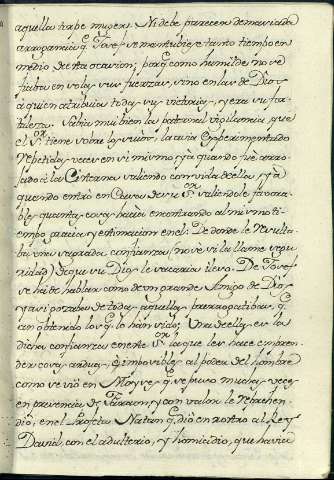 aquella torbe muger. Ni debe parecer demaciada
arrogancia q.e Jose, se mantubiese tanto tiempo en
medio de esta ocacion; porq.e como humilde no se
fiaba en solas sus fuerzas, sino en las de Dios
à quien atribuia todas sus victorias, y era su for-
taleza. Sabia mui bien la paternal vigilancia que
el S.or tiene sobre los suios, la avia experimentado
repetidas veces en si mismo, ya quando fue arro-
jado à la Cisterna saliendo con vida de ella, y à
quando entrò en Casa de su S.or saliendole favora-
bles quantas cosas hacia encontrando al mismo ti-
empo gracia y estimacion en el. De donde le resulta-
ba una sagrada confianza (no se si la llame segu-
ridad) de que su Dios le sacaria ileso. De Josef
se ha de hablar como de un grande Amigo de Dios,
y asi gozaba de todas aquellas prerrogatibas, q.e
an obtenido los q.e lo han sido; Una de ellas es la
dicha confianza en este S.or la que les hace empren-
der cosas arduas, è imposibles al poder del hombre
como se viò en Moyses q.e se puso muchas veces
en presencia de Faraon, y con valor le reprehen-
diò; en el Profeta Natan q.e diò en rostro al Rey
David, con el adulterio, y homicidio, que havia